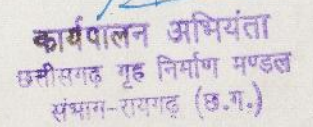 कार्यपालन अभियंता
छत्तीसगढ़ गृह निर्माण मण्डल
संभाग-रायगढ़ (छ.ग.)